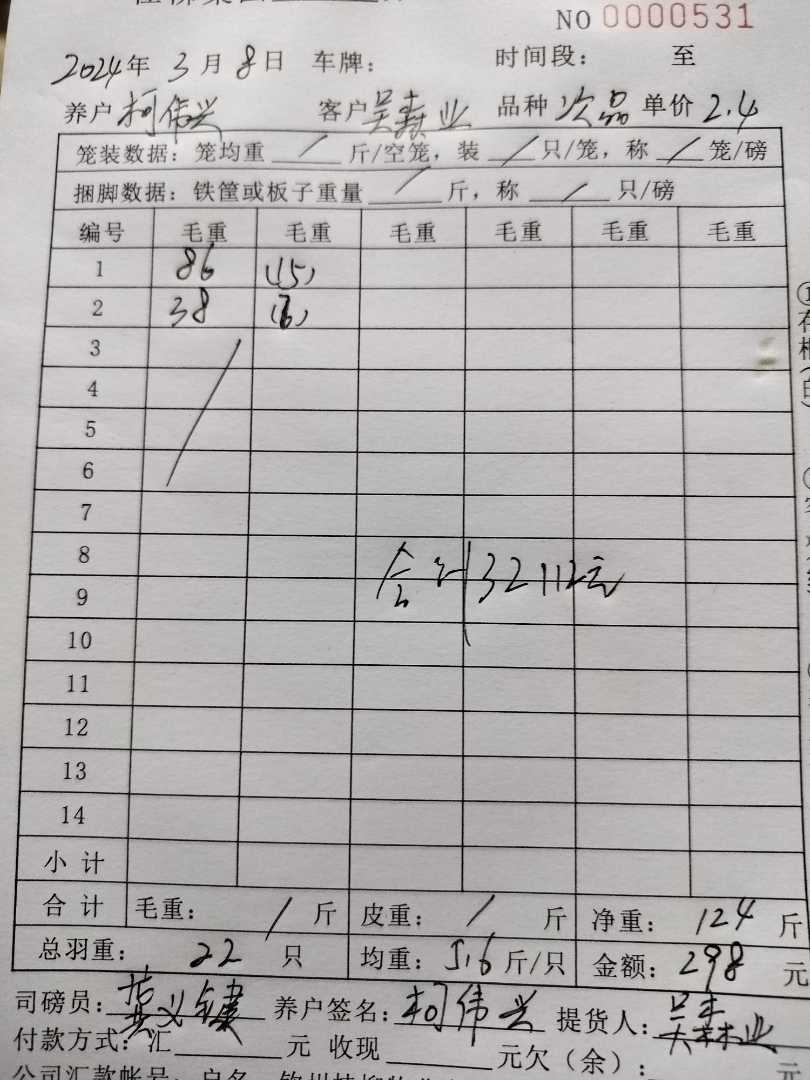 NO 0000531
2024年 3月 8日 车牌： 时间段： 至
养户 柯伟兴 客户 吴森业 品种 次品 单价 2.4
笼装数据：笼均重 / 斤/空笼，装 / 只/笼，称 / 笼/磅
捆脚数据：铁筐或板子重量 / 斤，称 / 只/磅
编号 毛重 毛重 毛重 毛重 毛重 毛重
1 86 (15)
2 38
3
4
5
6
7
8
合计 32112元
9
10
11
12
13
14
小计
合计 毛重： / 斤 皮重： / 斤 净重： 124 斤
总羽重： 22 只 均重： 5.6 斤/只 金额： 298 元
司磅员： 黄义健 养户签名： 柯伟兴 提货人： 吴森业
付款方式：汇 元 收现 元欠（余）： 元
公司汇款帐号：户名